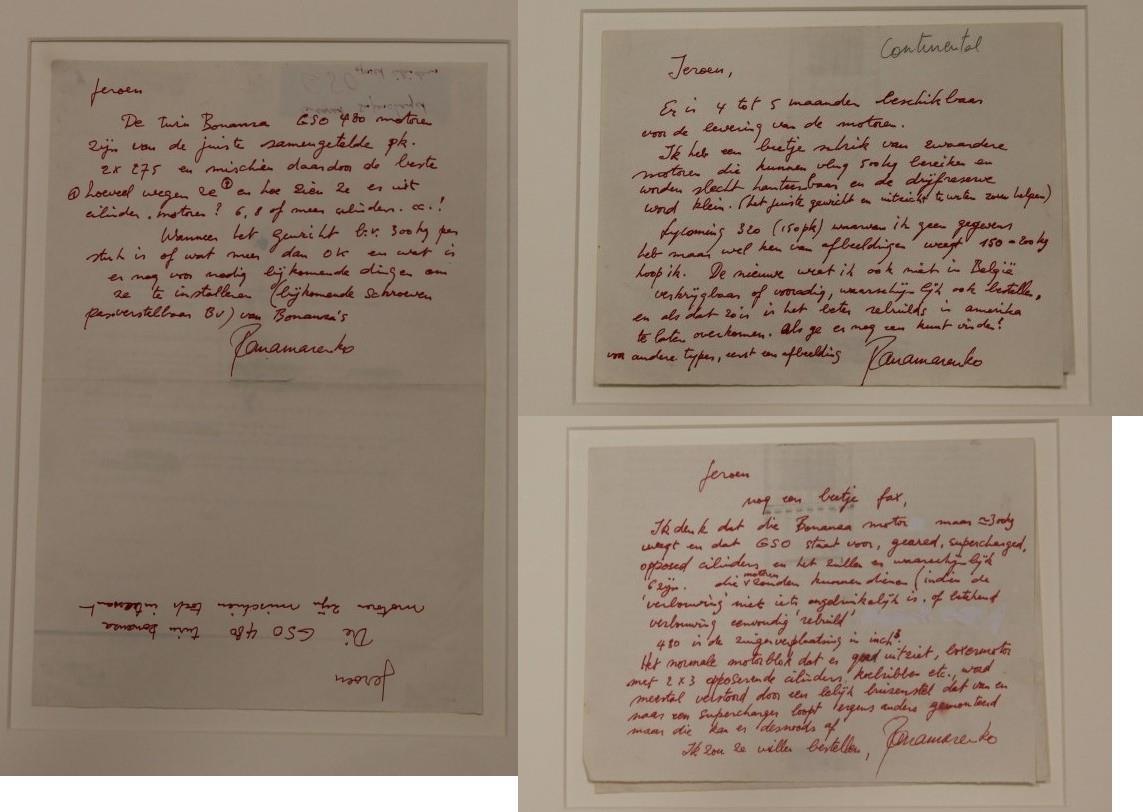 Jeroen
De twin Bonanza GSO 480 motoren
zijn van de juiste samengetelde pk.
2x 275 en mischien daardoor de beste
hoeveel wegen ze en hoe zien ze er uit
cilinder, motoren? 6, 8 of meer cilinders. cc.!
Wanneer het gewicht b.v. 300kg per
stuk is of wat meer dan OK en wat is
er nog voor nodig bijkomende dingen om
ze te installeren (bijkomende schroeven
pasverstelbaar BV) van Bonanza's
Panamarenko
Jeroen
Die GSO 480 twin bonanza
motoren zijn mischien toch interessant
Continental
Jeroen,
Er is 4 tot 5 maanden beschikbaar
voor de levering van de motoren.
Ik heb een beetje schrik van zwaardere
motoren die kunnen vlug 500kg bereiken en
worden slecht hanteerbaar en de drijfreserve
word klein. (het juiste gewicht en uitzicht te weten zou helpen)
Lycoming 320 (150pk) waarvan ik geen gegevens
heb maar wel ken van afbeeldingen weegt 150-200kg
hoop ik. De nieuwe weet ik ook niet in België
verkrijgbaar of voorradig, waarschijnlijk ook bestellen,
en als dat zo is is het beter rebuilds in amerika
te laten overkomen. Als ge er nog een kunt vinden?
van andere types, eerst een afbeelding
Panamarenko
Jeroen
nog een beetje fax,
Ik denk dat die Bonanza motor maar ≈ 300kg
weegt en dat GSO staat voor, geared, supercharged,
opposed cilinders en het zullen er waarschijnlijk
6 zijn. die motoren zouden kunnen dienen (indien de
'verbouwing' niet iets ongelukkelijk is. of bestaand
verbouwing eenvoudig 'rebuild'
480 is de zuigerverplaatsing in inch³
Het normale motorblok dat er goed uitziet, boxermotor
met 2 x 3 opposerende cilinders, koelribben etc., word
meestal verstoord door een lelijk buizenstel dat van en
naar een supercharger loopt ergens andere gemonteerd
maar die kan er desnoods af
Ik zou ze willen bestellen, Panamarenko